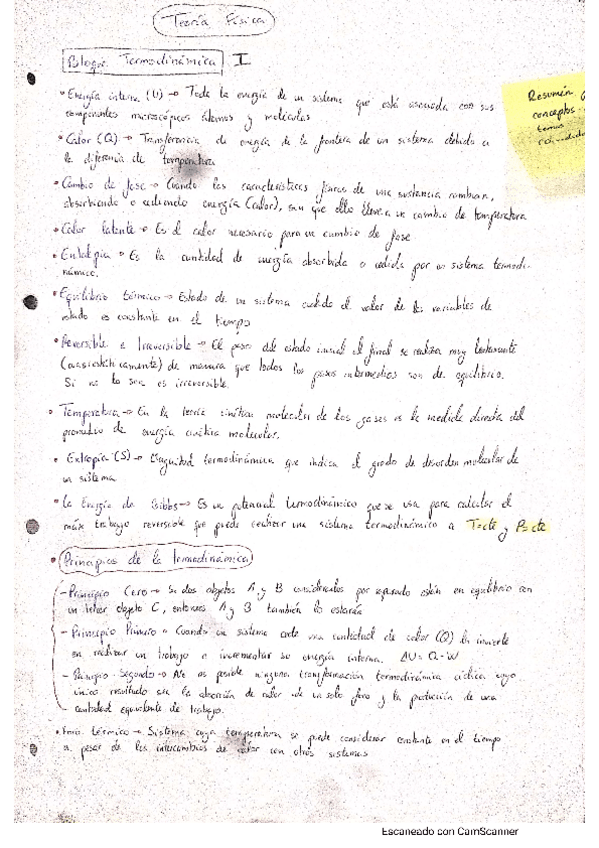 Teoría Física
Bloque Termodinámica I
Resumen
conceptos
temas
• Energía interna (U) → Toda la energía de un sistema que está asociada con sus
componentes microscópicos átomos y moléculas
• Calor (Q) → Transferencia de energía de la frontera de un sistema debido a
la diferencia de temperatura
• Cambio de fase → Cuando las características físicas de una sustancia cambian,
absorbiendo o cediendo energía (calor), sin que ello lleve a un cambio de temperatura
• Calor latente → Es el calor necesario para un cambio de fase
• Entalpia → Es la cantidad de energía absorbida o cedida por un sistema termodi-
námico.
• Equilibrio térmico → Estado de un sistema cuando el valor de las variables de
estado es constante en el tiempo
• Reversible e Irreversible → El paso del estado inicial al final se realiza muy lentamente
(cuasiestáticamente) de manera que todos los pasos intermedios son de equilibrio.
Si no lo son es irreversible.
• Temperatura → En la teoría cinética molecular de los gases es la medida directa del
promedio de energía cinética molecular.
• Entropía (S) → Magnitud termodinámica que indica el grado de desorden molecular de
un sistema
• La Energía de Gibbs → Es un potencial termodinámico que se usa para calcular el
máx trabajo reversible que puede realizar un sistema termodinámico a T=cte y P=cte
• Principios de la termodinámica
- Principio Cero → Si dos objetos A y B considerados por separado están en equilibrio con
un tercer objeto C, entonces A y B también lo estarán
- Principio Primero → Cuando un sistema cede una cantidad de calor (Q) la invierte
en realizar un trabajo e incrementar su energía interna. ΔU= Q-W
- Principio Segundo → No es posible ninguna transformación termodinámica cíclica cuyo
único resultado sea la absorción de calor de un solo foco y la producción de una
cantidad equivalente de trabajo.
• Foco térmico → Sistema cuya temperatura se puede considerar constante en el tiempo
a pesar de los intercambios de calor con otros sistemas
Escaneado con CamScanner